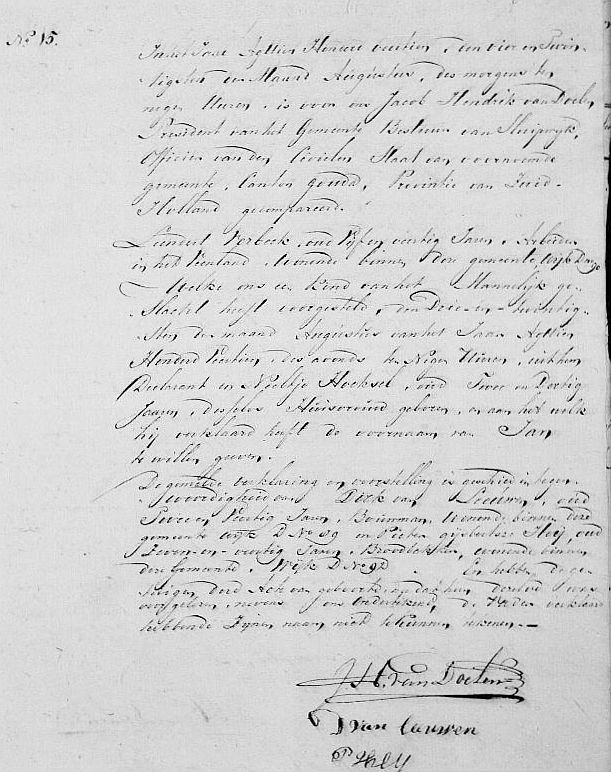 No. 15.
In het Jaar Agttien Honderd veertien, den vier en Twin-
tigsten der Maand Augustus, des morgens ten
negen Uuren, is voor ons Jacob Hendrik van Doelen
President van het Gemeente Bestuur van Sluipwijk,
Officier van den Civielen Staat van voornoemde
gemeente, Canton gouda, Provintie van Zuid-
Holland gecompareerd.
Leendert Verbeek, oud Vijf en veertig Jaren, Arbeider
in het Veenland, wonende binnen dese gemeente Wijk D
Welke ons een Kind van het Mannelijk ge-
slacht heeft voorgesteld, den Drie-en-twintig-
sten der maand Augustus van het Jaar Agttien
Honderd Veertien, des avonds te Negen Uuren, uit hem
Declarant en Neeltje Hoeksel, oud Twee en Dertig
Jaaren, desselvs Huisvrouw geboren, en aan het welk
hij verklaard heeft de voornaam van Jan
te willen geven.
De gemelde verklaring en voorstelling is geschied in tegen-
woordigheid van Dirk van Leeuwen, oud
Twee en Veertig Jaren, Bouwman, Wonende binnen dese
gemeente wijk D No 89 en Pieter gijsbertsz Heij, oud
Zeven-en-veertig Jaren, Broodbakker, wonende binnen
dese Gemeente, Wijk D No 90. En hebben de ge-
tuigen dese Acte van geboorte, na dat hen dezelve was
voorgelezen, nevens ons Ondertekend, de Vader verklaard
hebbende Zijnen naam niet te kunnen tekenen.—
J H. van Doelen
D van leuwen
P Heij